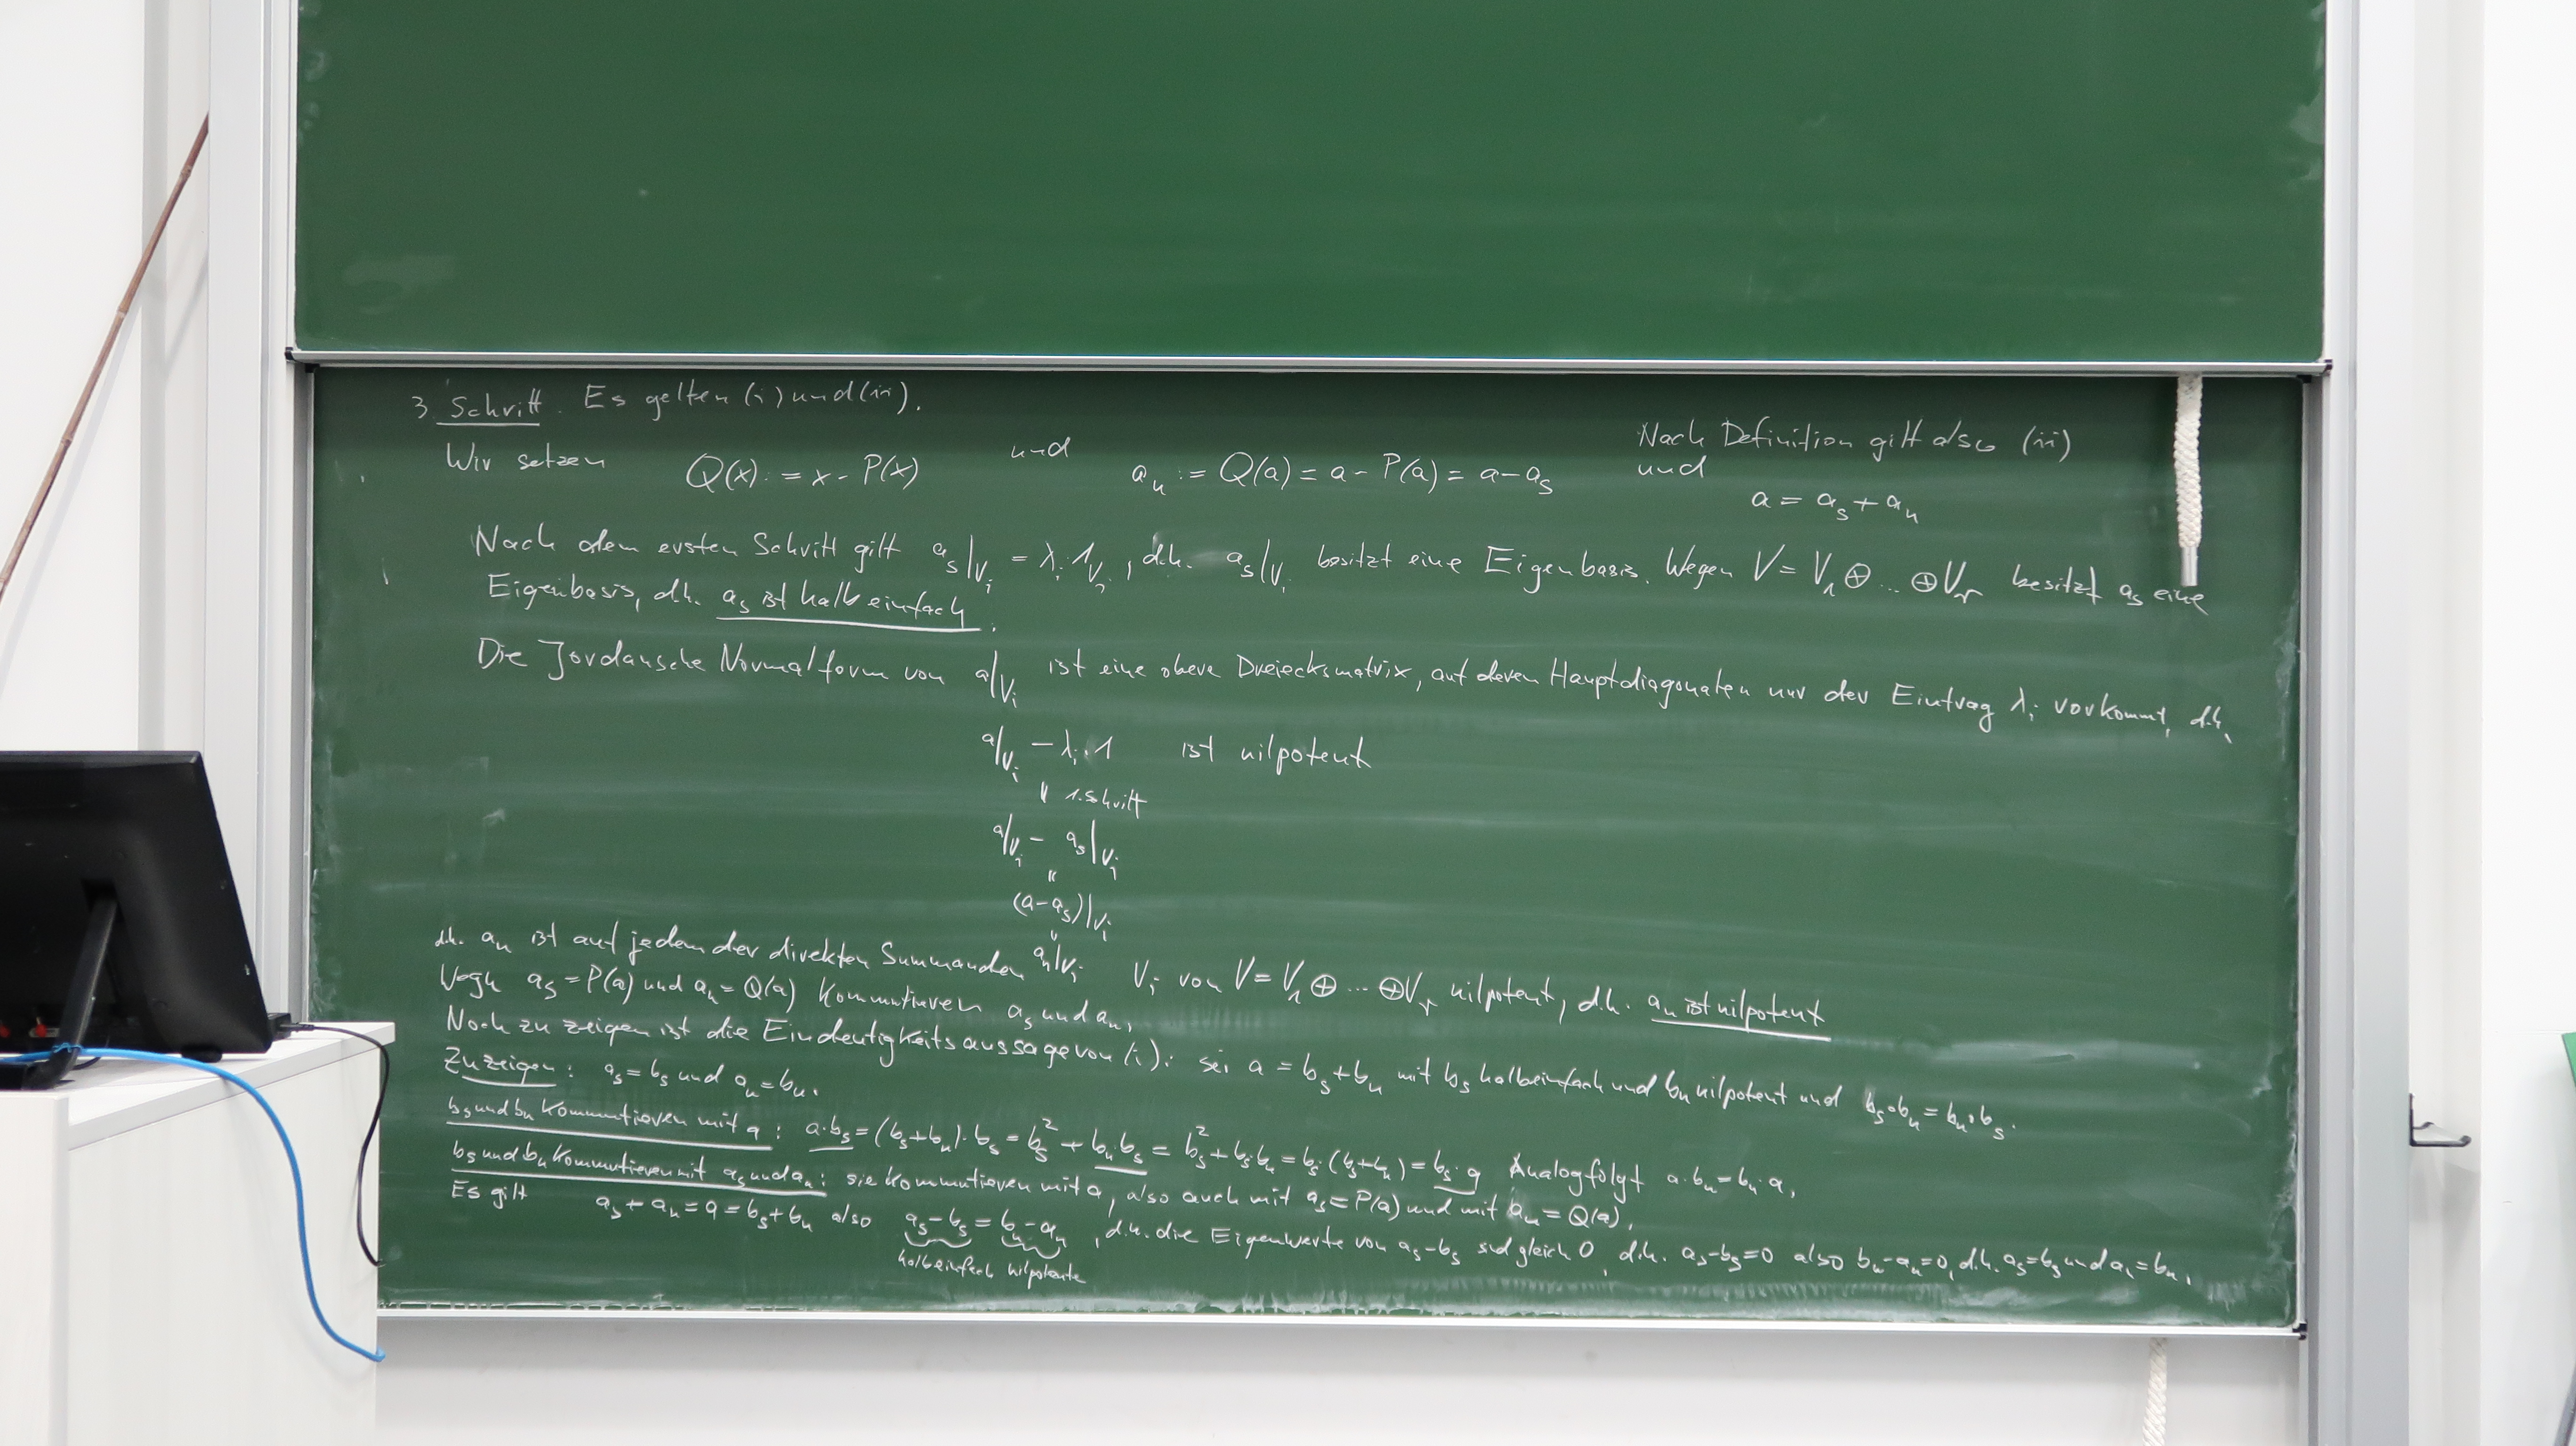 3. Schritt. Es gelten (i) und (ii).
Wir setzen Q(x) := x - P(x) und a_n := Q(a) = a - P(a) = a - a_s Nach Definition gilt also (ii)
und
a = a_s + a_n
Nach dem ersten Schritt gilt a_s|V_i = λ_i·1_{V_i}, d.h. a_s|V_i besitzt eine Eigenbasis. Wegen V = V_1 ⊕ ... ⊕ V_r besitzt a_s eine
Eigenbasis, d.h. a_s ist halbeinfach.
Die Jordansche Normalform von a|V_i ist eine obere Dreiecksmatrix, auf deren Hauptdiagonalen nur der Eintrag λ_i vorkommt, d.h.
a|V_i - λ_i·1 ist nilpotent
" 1. Schritt
a|V_i - a_s|V_i
"
(a-a_s)|V_i
"
a_n|V_i
d.h. a_n ist auf jedem der direkten Summanden V_i von V = V_1 ⊕ ... ⊕ V_r nilpotent, d.h. a_n ist nilpotent
Wegen a_s = P(a) und a_n = Q(a) kommutieren a_s und a_n.
Noch zu zeigen ist die Eindeutigkeitsaussage von (i): sei a = b_s + b_n mit b_s halbeinfach und b_n nilpotent und b_s∘b_n = b_n∘b_s.
Zu zeigen: a_s = b_s und a_n = b_n.
b_s und b_n kommutieren mit a: a·b_s = (b_s+b_n)·b_s = b_s^2 + b_n·b_s = b_s^2 + b_s·b_n = b_s·(b_s+b_n) = b_s·a Analog folgt a·b_n = b_n·a.
b_s und b_n kommutieren mit a_s und a_n: sie kommutieren mit a, also auch mit a_s = P(a) und mit a_n = Q(a).
Es gilt a_s + a_n = a = b_s + b_n also a_s - b_s = b_n - a_n, d.h. die Eigenwerte von a_s - b_s sind gleich 0, d.h. a_s - b_s = 0 also b_n - a_n = 0, d.h. a_s = b_s und a_n = b_n.
halbeinfach nilpotente